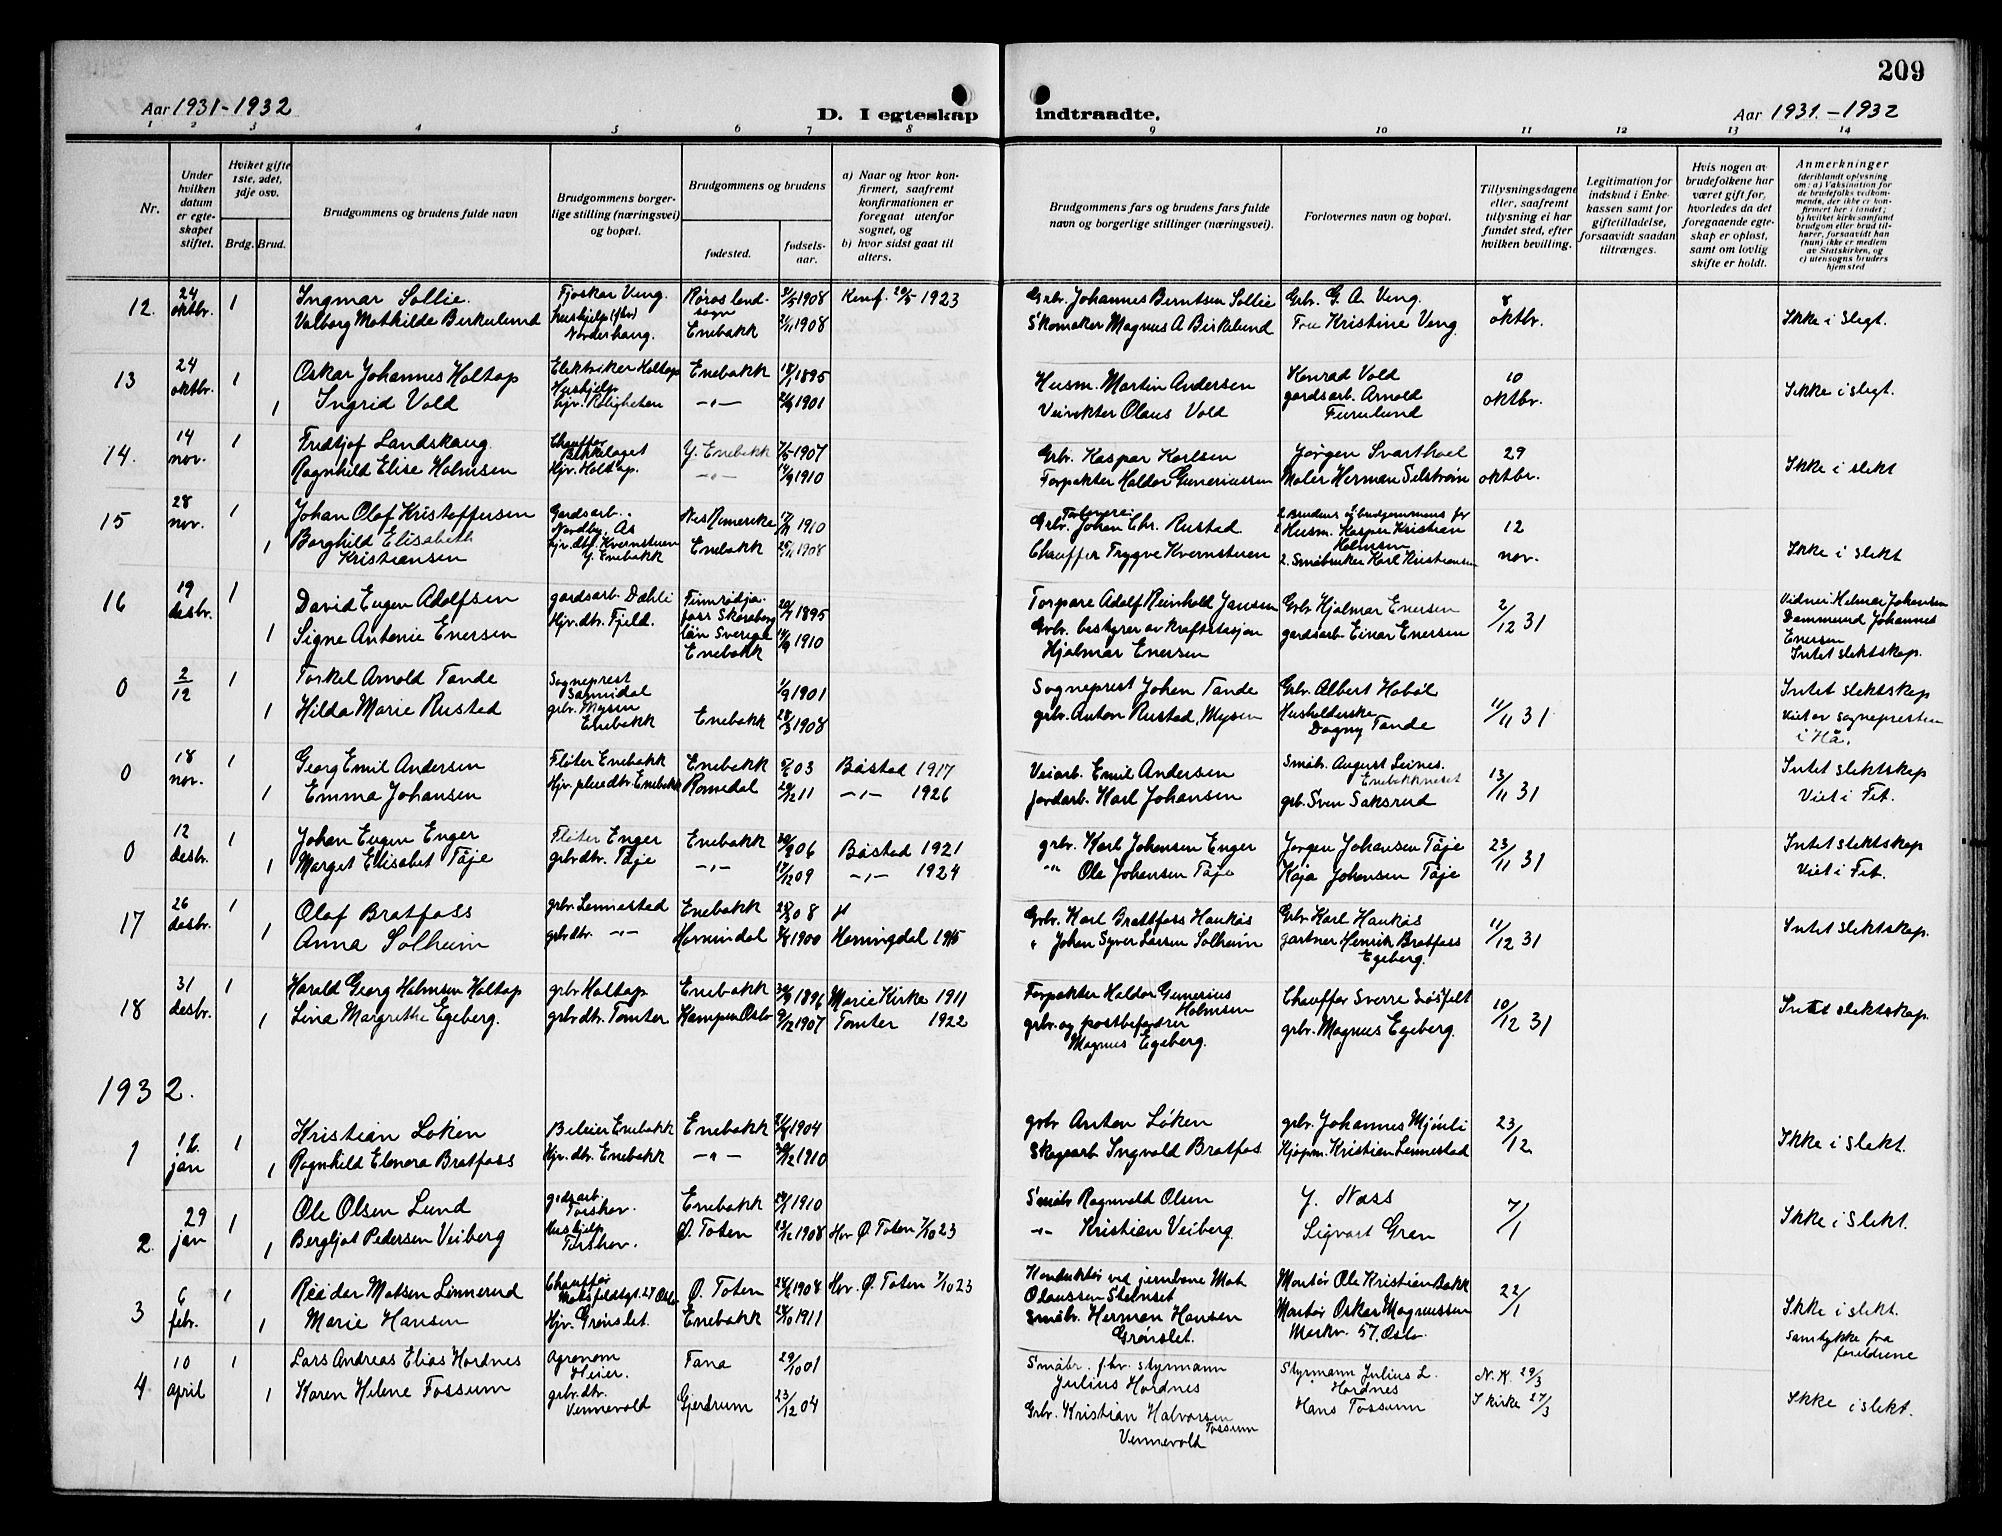 209
Aar 1931-1932
D. I egteskap
indtraadte.
Aar 1931.-1932
1 2 3 4 5 6 7 8
9 10 11 12 13 14
Nr.
Under hvilken datum er egteskapet stiftet.
Hviket gifte 1ste, 2det, 3dje osv.
Brdg. Brud.
Brudgommens og brudens fulde navn
Brudgommens borgerlige stilling (næringsvei) og bopæl.
Brudgommens og brudens
fødested.
fødselsaar.
a) Naar og hvor konfirmert, saafremt konfirmationen er foregaat utenfor sognet, og
b) hvor sidst gaat til alters.
Brudgommens fars og brudens fars fulde navn og borgerlige stillinger (næringsvei).
Forlovernes navn og bopæl.
Tillysningsdagene eller, saafremt tillysning ei har fundet sted, efter hvilken bevilling.
Legitimation for indskud i Enkekassen samt for giftetilladelse, forsaavidt saadan tiltrænges.
Hvis nogen av brudefolkene har været gift før, hvorledes da det foregaaende egteskap er opløst, samt om lovlig skifte er holdt.
Anmerkninger
(deriblandt oplysning om: a) Vaksination for de brudefolks vedkommende, der ikke er konfirmert her i landet; b) hvilket kirkesamfund brudgom eller brud tilhører, forsaavidt han (hun) ikke er medlem av Statskirken, og c) utensogns bruders hjemsted
12. 24 oktbr. 1 Ingmar Sollie. Fjøskar Veng. Røros landsogn 1908 Konf. 20/5 1923 Grbr. Johannes Berntsen Sollie Grb. G. A. Veng. 8 oktbr. Ikke i slegt.
Valborg Mathilde Birkelund Hushjelp Norderhaug. Enebakk 1908 Skomaker Magnus A Birkelund Fru Kristine Veng.
13 24 oktbr. 1 Oskar Johannes Holtop Elektriker Holtop Enebakk 1895 Husm. Martin Andersen Konrad Vold 10 oktbr. Ikke i slegt.
1 Ingrid Vold Hushjelp hjv. Roligheten -"- 1901 Veivokter Olaus Vold gardsarb. Arnold Furulund
14. 14 nov. 1 Fridtjof Landskaug. Chauffør Bekkelaget Y. Enebakk 1907 Grb. Kaspar Karlsen Jørgen Svarthoel 29 oktbr. Ikke i slekt
Ragnhild Elise Holmsen Hjv. Holtop. -"- 1910 Forpakter Haldor Guneriussen Maler Herman Selstrøm
15 28 nov. 1 Johan Olaf Kristoffersen Gardsarb. Nordby. Ås Nes Romerike 1910 Grbr. Johan Chr. Rustad Husm. Kasper Kristian Holmsen 12 nov. Ikke i slekt
1 Borghild Elisabeth Kristiansen hjv. dtr. Kvernstuen Y. Enebakk Enebakk 1908 Chauffør Trygve Kvernstuen 2. Småbruker Karl Kristiansen
16 19 desbr. 1 David Eugen Adolfsen gardsarb. Dæhli Skaraborg län Sverige 1895 Torpare Adolf Reinhold Janssen Grbr Hjalmar Enersen 2/12 31 Vidner: Helmar Johansen
1 Signe Antonie Enersen Hjv. dtr. Fjeld. Enebakk 1910 Grbr. bestyrer av kraftstasjon Hjalmar Enersen gardsarb. Einar Enersen Dammerud Johannes Enersen Intet slektskap.
0 2/12 1 Torkel Arnold Tande Sogneprest 1/9 1901 Sogneprest Johan Tande Grbr. Albert Habøl 11/11 31 Intet slektskap
1 Hilda Marie Rustad grbr. Mysen Enebakk Enebakk 28/3 1908 grbr. Anton Rustad, Mysen Husholderske Dagny Tande Viet av sognepresten i Hå.
0 18 nov. 1 Georg Emil Andersen Fløter Enebakk Enebakk 03 Båstad 1917 Veiarb. Emil Andersen Småb. August Leines. Enebakkneset 13/11 31 Intet slektskap
1 Emma Johansen Hjv. pleiedtr. Enebakk Romedal 29/12 11 -"- 1926 Jordarb. Karl Johansen grb. Sven Saksrud Viet i Fet.
0 12 desbr. 1 Johan Eugen Enger Fløter Enger Enebakk 06 Båstad 1921 grbr. Karl Johansen Enger Jørgen Johansen Tåje 23/11 31 Intet slektskap
1 Marget Elisabet Tåje grbr.dtr. Tåje -"- 17/12 09 -"- 1924 -"- Ole Johansen Tåje Kaja Johansen Tåje Viet i Fet.
17 26 desbr. 1 Olaf Bratfoss grbr. Lennestad Enebakk 08 Grbr. Karl Brattfoss Haukås Grbr. Karl Haukås 11/12 31 Intet slektskap.
1 Anna Solheim grbr.dtr. -"- Hornindal 1900 Horningdal 1915 " Johan Syver Larsen Solheim gartner Henrik Bratfoss Egeberg.
18 31 desbr. 1 Harald Georg Holmsen Holtop grbr. Holtop Enebakk 1896 Marie Kirke 1911 Forpakter Haldor Gunerius Holmsen Chauffør Sverre Løsfelt 10/12 31 Intet slektskap.
1 Lina Margrethe Egeberg. grbr.dtr. Tomter Kampen Oslo 9/12 1907 Tomter 1922 grbr. og postbefordrer Magnus Egeberg. grbr. Magnus Egeberg.
1932.
1 16 jan 1 Kristian Løken Bileier Enebakk Enebakk 1904 grbr Anton Løken grbr. Johannes Mjønli 23/12 Ikke i slekt.
1 Ragnhild Elenora Bratfoss Hjv. dtr. Enebakk -"- 1910 Skogsarb. Ingvald Bratfos Kjøpm. Kristian Lennestad
2. 29 jan 1 Ole Olsen Lund gårdsarb. Torshov. Enebakk 1910 Småbr Ragnvald Olsen J. Næss 7/1 Ikke i slekt.
1 Bergljot Pedersen Veiberg Hushjelp Torshov. Ø. Toten 1908 Hov Ø Toten 7/10 23 -"- Kristian Veiberg. Sigvart Gran
3 6 febr. 1 Reidar Matsen Linnerud Chauffør 27 Oslo Ø. Toten 1908 Hov. Ø. Toten 7/10 23 Konduktør ved jernbane Mat. Olaussen Montør Ole Kristian Bakk 22/1 Ikke i slekt.
1 Marie Hansen Hjv. Grønslet. Enebakk 1911 Småbr. Herman Hansen Grønslet. Montør Oskar Magnussen Markv. 57. Oslo. Samtykke fra foreldrene
4 10 april 1 Lars Andreas Elias Hordnes Agronom Heier. Fana 29/10 01 Småbr. f.hv. styrmann Julius Hordnes Styrmann Julius L. Hordnes N.K. 29/3
1 Karen Helene Fossum grbr. dtr. Vennevold Gjerdrum 23/12 04 Grbr. Kristian Halvorsen Fossum Vennevold Hans Fossum I kirke 27/3 Ikke i slekt.